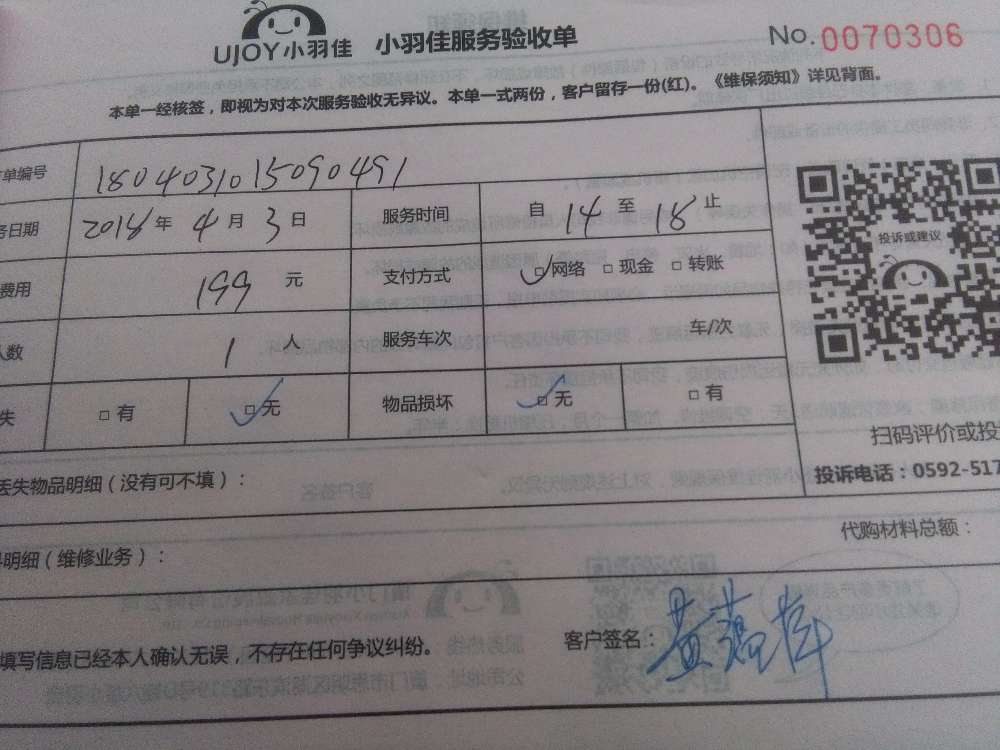 UJOY小羽佳 小羽佳服务验收单 No.0070306
本单一经核签，即视为对本次服务验收无异议。本单一式两份，客户留存一份(红)。《维保须知》详见背面。
单编号 1804031015090491
务日期 2018 年 4 月 3 日 服务时间 自 14 至 18 止
费用 199 元 支付方式 □网络 □现金 □转账
人数 1 人 服务车次 车/次
失 □有 □无 物品损坏 □无 □有
投诉或建议
扫码评价或投
投诉电话：0592-517
丢失物品明细（没有可不填）：
代购材料总额：
明细（维修业务）：
填写信息已经本人确认无误，不存在任何争议纠纷。 客户签名：